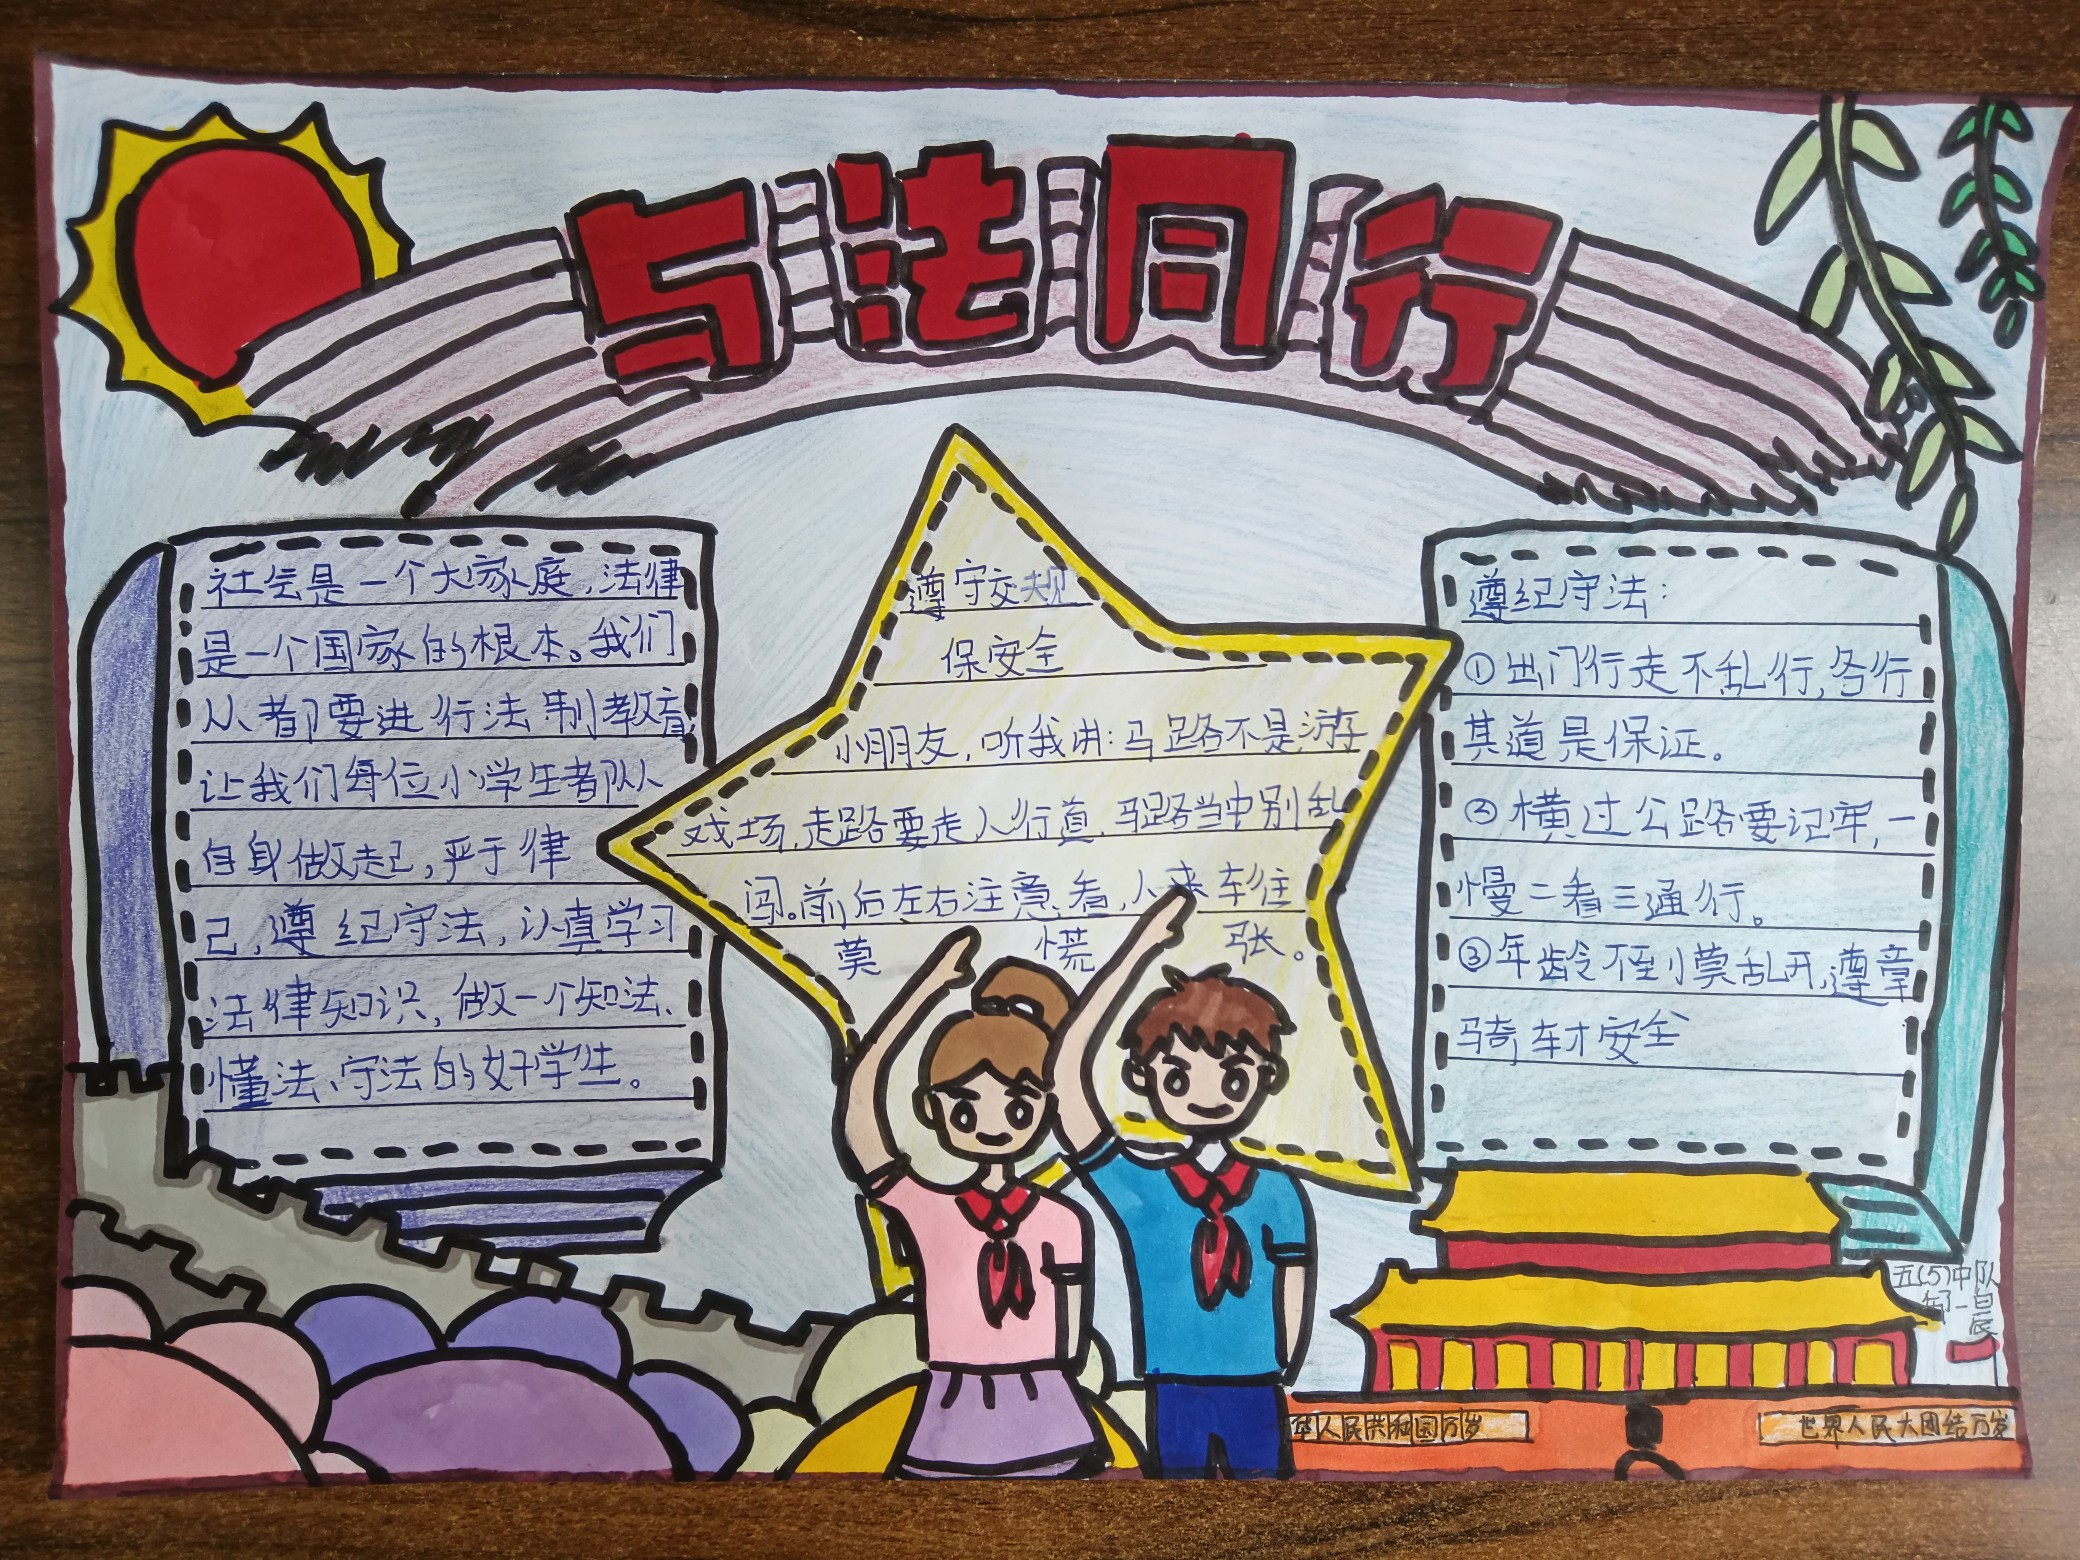 与法同行
社会是一个大家庭,法律
是一个国家的根本。我们
从者都要进行法制教育
让我们每位小学生者队人
自身做起,严于律
己,遵纪守法,认真学习
法律知识,做一个知法、
懂法、守法的好学生。
遵守交规
保安全
小朋友,听我讲:马路不是游
戏场,走路要走人行道,马路当中别乱
闯。前后左右注意看,人来车往
莫慌张。
遵纪守法:
①出门行走不乱行,各行
其道是保证。
②横过公路要记牢,一
慢二看三通行。
③年龄不到莫乱开,遵章
骑车才安全
五(5)中队
一晨
华人民共和国万岁
世界人民大团结万岁